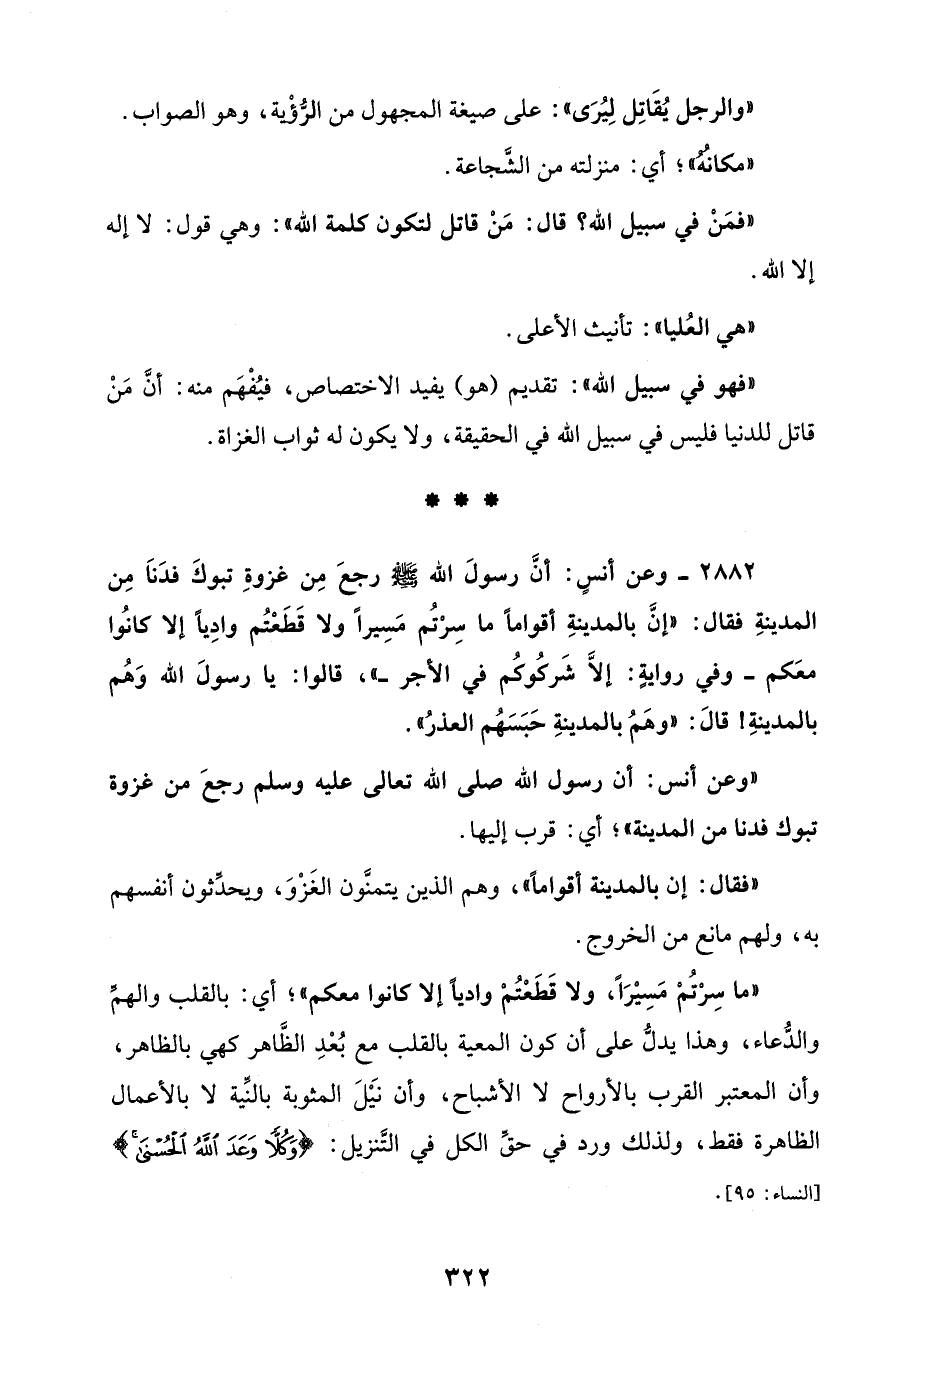 «والرجل يُقَاتِل لِيُرَى»: على صيغة المجهول من الرُّؤْية، وهو الصواب.
«مكانُهُ»؛ أي: منزلته من الشَّجاعة.
«فمَنْ في سبيل الله؟ قال: مَنْ قاتل لتكون كلمة الله»: وهي قول: لا إله
إلا الله.
«هي العُليا»: تأنيث الأعلى.
«فهو في سبيل الله»: تقديم (هو) يفيد الاختصاص، فيُفْهَم منه: أنَّ مَنْ
قاتل للدنيا فليس في سبيل الله في الحقيقة، ولا يكون له ثواب الغزاة.
* * *
٢٨٨٢ ـ وعن أنسٍ: أنَّ رسولَ الله ﷺ رجعَ مِن غزوةِ تبوكَ فدَنَا مِن
المدينةِ فقال: «إنَّ بالمدينةِ أقواماً ما سِرْتُم مَسِيراً ولا قَطَعْتُم وادِياً إلا كانُوا
معَكم ـ وفي روايةٍ: إلاَّ شَرِكُوكُم في الأجر ـ»، قالوا: يا رسولَ الله وَهُم
بالمدينةِ! قالَ: «وهَمُ بالمدينةِ حَبَسَهُم العذرُ».
«وعن أنس: أن رسول الله صلى الله تعالى عليه وسلم رجعَ من غزوة
تبوك فدنا من المدينة»؛ أي: قرب إليها.
«فقال: إن بالمدينة أقواماً»، وهم الذين يتمنَّون الغَزْوَ، ويحدِّثون أنفسهم
به، ولهم مانع من الخروج.
«ما سِرْتُمْ مَسِيْرَاً، ولا قَطَعْتُمْ وادياً إلا كانوا معكم»؛ أي: بالقلب والهمِّ
والدُّعاء، وهذا يدلُّ على أن كون المعية بالقلب مع بُعْدِ الظَّاهر كهي بالظاهر،
وأن المعتبر القرب بالأرواح لا الأشباح، وأن نَيَلَ المثوبة بالنِّية لا بالأعمال
الظاهرة فقط، ولذلك ورد في حقِّ الكل في التَّنزيل: ﴿وَكُلًّا وَعَدَ ٱللَّهُ ٱلْحُسْنَىٰ ۚ﴾
[النساء: ٩٥].
٣٢٢